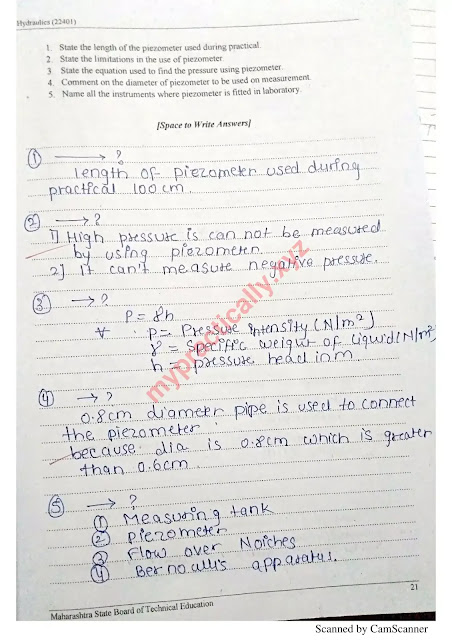 Hydraulics (22401)
1. State the length of the piezometer used during practical.
2. State the limitations in the use of piezometer
3. State the equation used to find the pressure using piezometer.
4. Comment on the diameter of piezometer to be used on measurement.
5. Name all the instruments where piezometer is fitted in laboratory.
[Space to Write Answers]
① → ?
length of piezometer used during
practical 100cm.
② → ?
1] High pressure is can not be measured
by using piezometer.
2] It can't measure negative pressure.
③ → ?
P = γh
P = Pressure Intensity (N/m²)
γ = Specific weight of liquid (N/m³
h = pressure head in m
④ → ?
0.8cm diameter pipe is used to connect
the piezometer
because dia is 0.8cm which is greater
than 0.6cm.
⑤ → ?
① Measuring tank
② Piezometer
③ Flow over Notches
④ Bernoulli's apparatus.
mypractically.xyz
21
Maharashtra State Board of Technical Education
Scanned by CamScanner